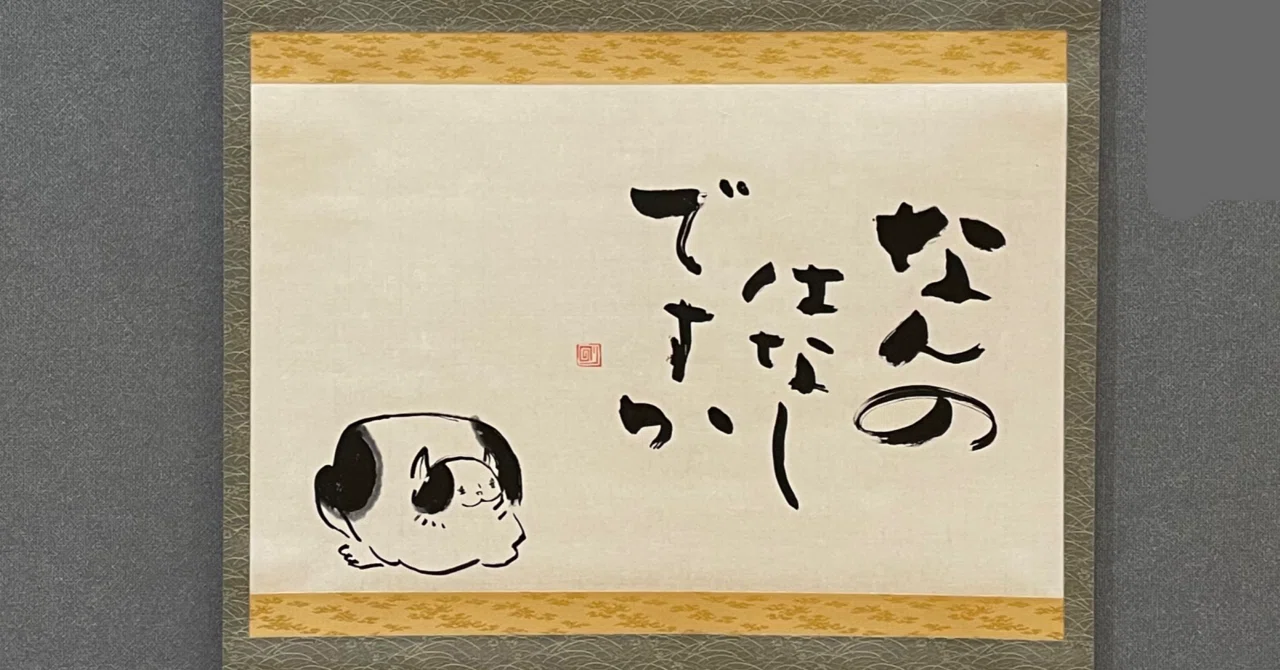 なんの
はなし
ですか